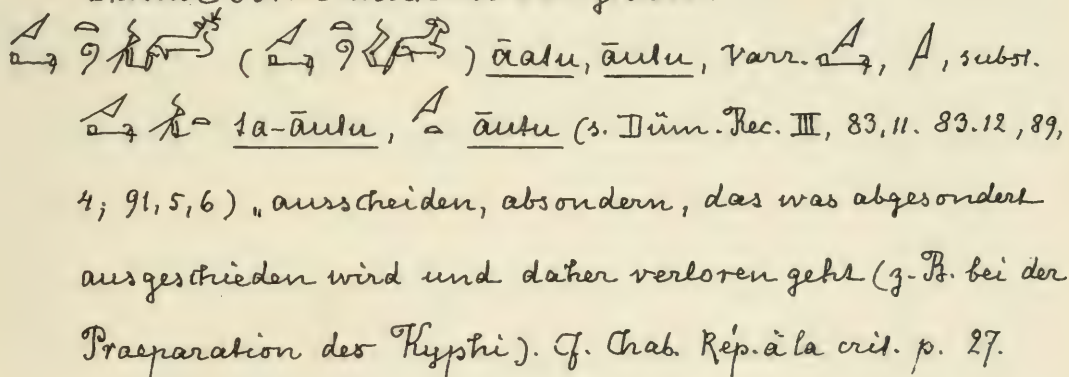 ( ) āatu, āutu, Varr. , , subst.
ta-āutu, āutu (s. Düm. Rec. III, 83,11. 83.12, 89,
4; 91,5,6) „ausscheiden, absondern, das was abgesondert
ausgeschieden wird und daher verloren geht (z-B. bei der
Praeparation des Kyphi). Cf. Chab. Rép. à la crit. p. 27.